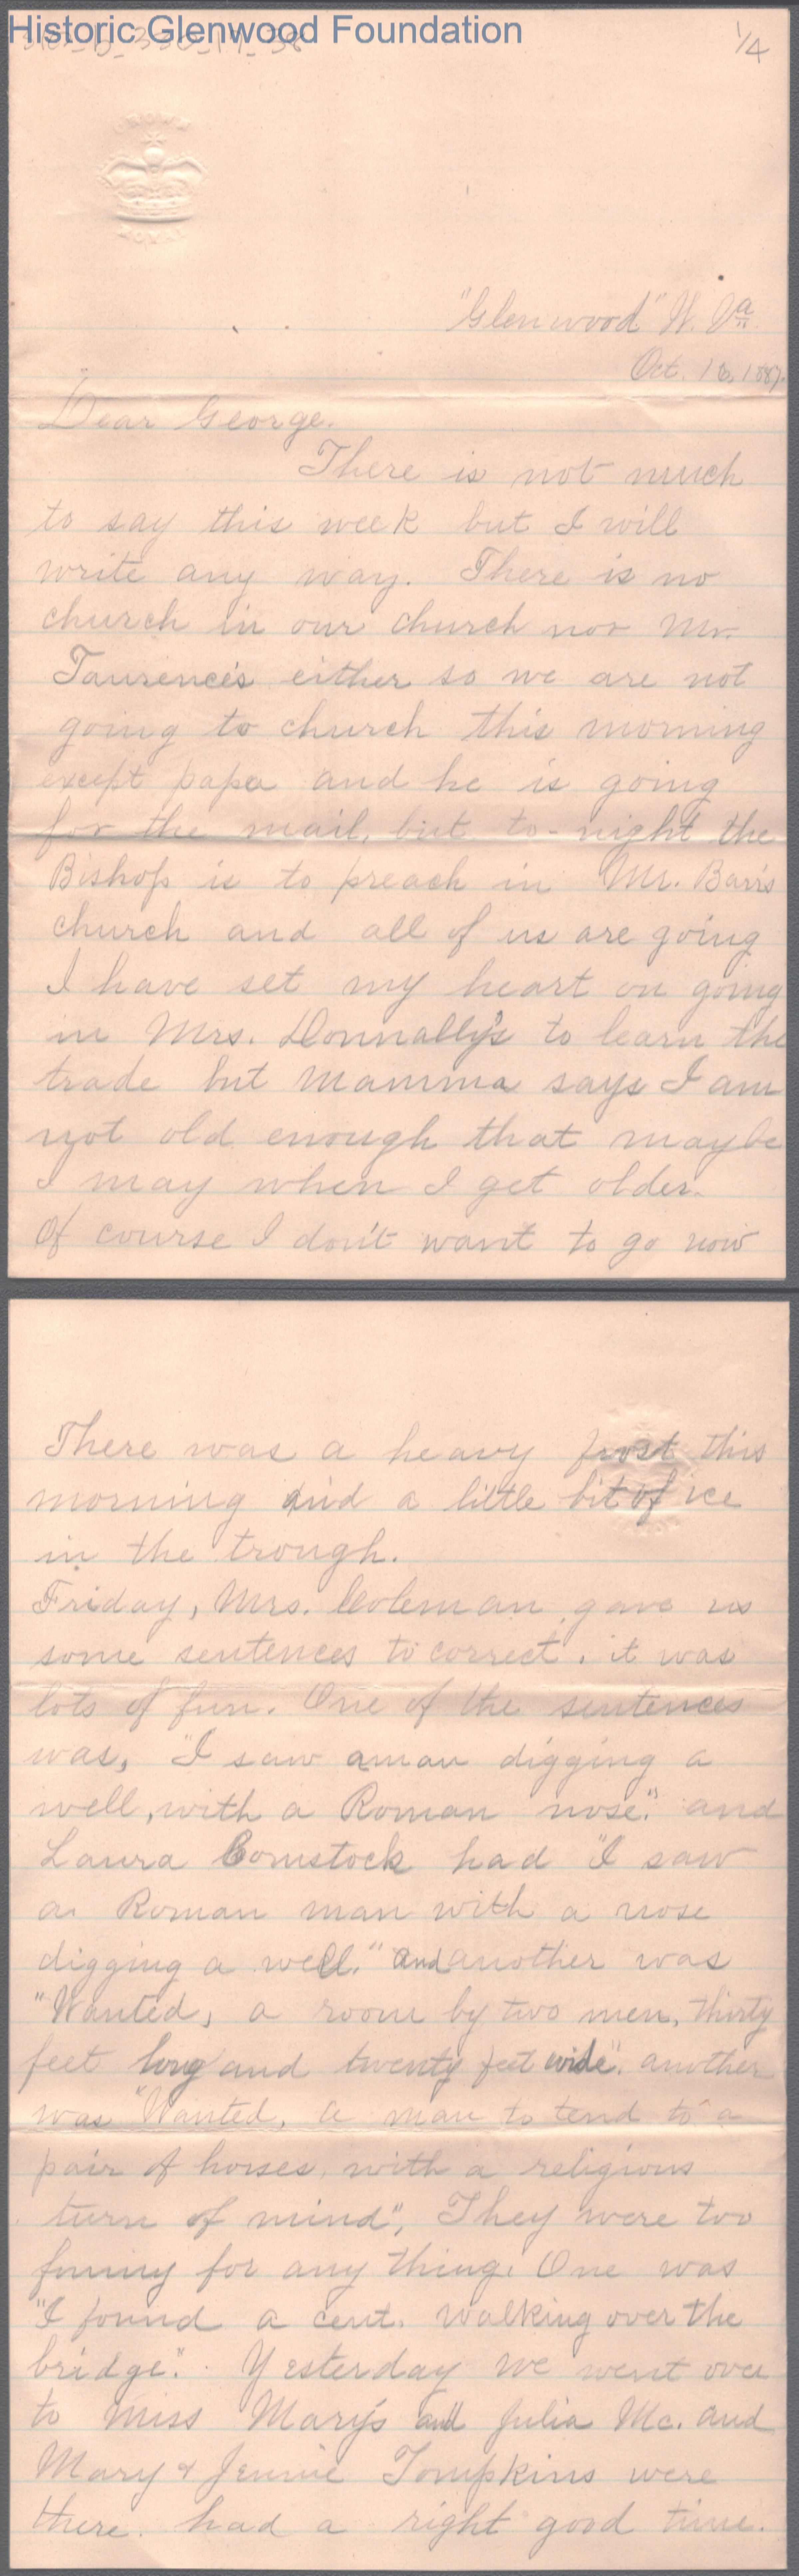 Historic Glenwood Foundation
1/4
CROWN
ROYAL
"Glenwood" W. Va.
Oct. 16, 1887.
Dear George.
There is not much
to say this week but I will
write any way. There is no
church in our church nor Mr.
either so we are not
going to church this morning
except papa and he is going
for the mail, but to-night the
Bishop is to preach in Mr. Barr's
church and all of us are going
I have set my heart on going
in Mrs. Donnally's to learn the
trade but Mamma says I am
not old enough that maybe
I may when I get older.
Of course I don't want to go now
There was a heavy frost this
morning and a little bit of ice
in the trough.
Friday, Mrs. Coleman gave us
some sentences to correct, it was
lots of fun. One of the sentences
was, "I saw a man digging a
well, with a Roman nose." and
Laura Comstock had "I saw
a Roman man with a nose
digging a well." and another was
"Wanted, a room by two men, thirty
feet long and twenty feet wide". another
was "Wanted, a man to tend to a
pair of horses, with a religious
turn of mind", They were too
funny for any thing. One was
"I found a cent. walking over the
bridge". Yesterday we went over
to Miss Mary's and Julia Mc. and
Mary & Jennie Tompkins were
there. had a right good time.